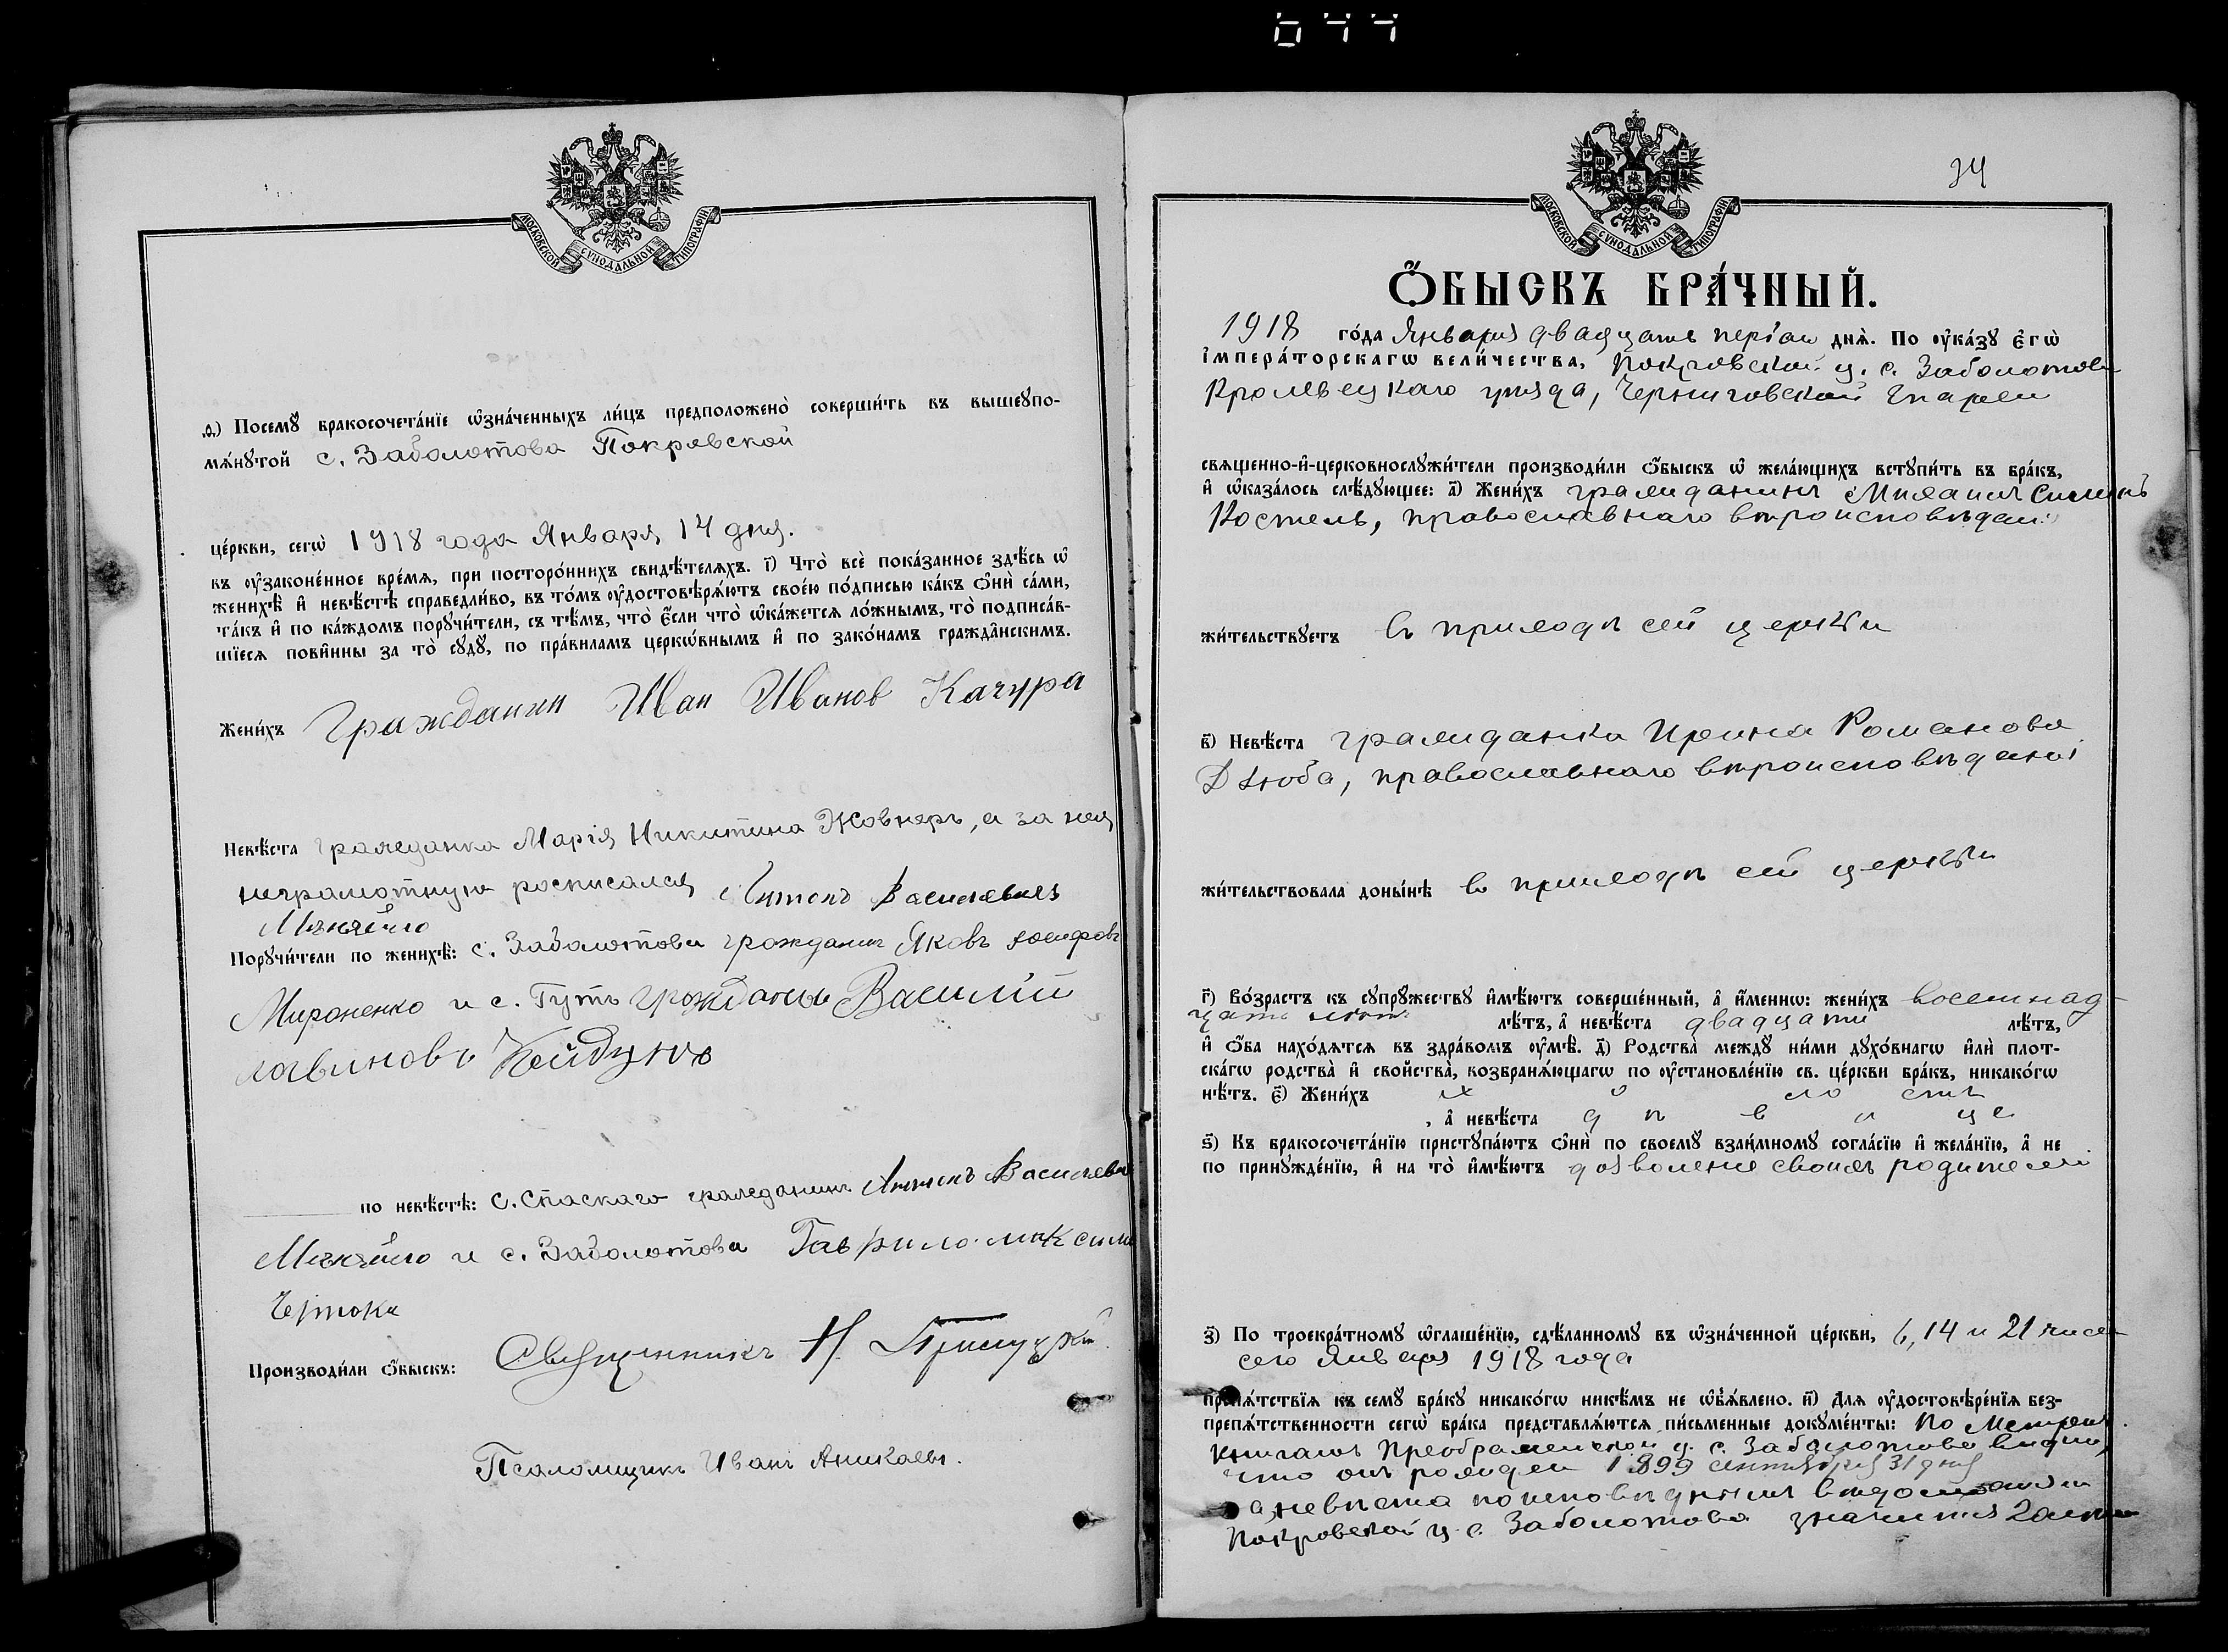 МОСКОВСКОЙ СѴНОДАЛЬНОЙ ТИПОГРАФІИ.
.ѳ.) Посемꙋ бракосочета́нїе ѡ҆зна́ченныхъ ли́цъ предположено̀ соверши́ть въ вышеꙋпо-
мѧ́нꙋтой с. Заболотова Покровской
це́ркви, сегѡ̀ 1918 года Января 14 дня.
въ ᲂу҆законе́нное вре́мѧ, при посторо́ннихъ свидѣ́телѧхъ. і҃) Что̀ всѐ пока́занное здѣ́сь ѡ҆
женихѣ̀ и҆ невѣ́стѣ справедли́во, въ то́мъ ᲂу҆достовѣрѧ́ютъ свое́ю по́дписью ка́къ ѻ҆нѝ са́ми,
та́къ и҆ по ка́ждомъ порꙋчи́тели, съ тѣ́мъ, что̀ є҆́сли что̀ ѡ҆ка́жетсѧ ло́жнымъ, то̀ подписа́в-
шїесѧ пови́нны за то̀ сꙋдꙋ̀, по пра́виламъ церкѡ́внымъ и҆ по зако́намъ гражда̂нскимъ.
Жени́хъ Гражданин Иван Иванов Качура
Невѣ́ста гражданка Марія Никитина Жовнеръ, а за нея
неграмотную росписался Антонъ Васильевъ
Порꙋчи́тели по женихѣ̀: с. Заболотова гражданин Яковъ
Мироненко и с. Гутъ Василій
по невѣ́стѣ: с. Спаскаго гражданинъ Антонъ
и с. Заболотова Гаврило
Производи́ли ѻ҆́быскъ: Священникъ Н.
Псаломщикъ Иванъ Аникаевъ.
34
МОСКОВСКОЙ СѴНОДАЛЬНОЙ ТИПОГРАФІИ.
Ѻ҆́БЫСКЪ БРА́ЧНЫЙ.
1918 го́да Января двадцать перваго днѧ̀. По ᲂу҆ка́зꙋ Є҆гѡ̀
І҆мпера́торскагѡ вели́чества, Покровской ц. с. Заболотова
Кролевецкаго уѣзда, Черниговской Епархіи
свѧщенно-и҆-церковнослꙋжи́тели производи́ли ѻ҆́быскъ ѡ҆ жела́ющихъ встꙋпи́ть въ бра́къ,
и҆ ѡ҆каза́лось слѣ́дꙋющее: а҃) Жени́хъ гражданинъ Михаилъ
Костель, православнаго вѣроисповѣданія
жи́тельствꙋетъ въ приходѣ сей церкви
в҃) Невѣ́ста гражданка Ирина Романова
Дзюба, православнаго вѣроисповѣданія
жи́тельствовала доны́нѣ въ приходѣ сей церкви
г҃) Во́зрастъ къ сꙋпрꙋ́жествꙋ и҆мѣ́ютъ соверше́нный, а҆ и҆́меннѡ: жени́хъ восемнад-
цать лѣтъ лѣ́тъ, а҆ невѣ́ста двадцати лѣ́тъ,
и҆ ѻ҆́ба нахо́дѧтсѧ въ здра́вомъ ᲂу҆мѣ̀. д҃) Родства̀ междꙋ̀ ни́ми дꙋхо́внагѡ и҆лѝ плот-
ска́гѡ родства̀ и҆ свойства̀, возбранѧ́ющагѡ по ᲂу҆становле́нїю св. це́ркви бра́къ, никако́гѡ
нѣ́тъ. є҃) Жени́хъ х о ло стъ
, а҆ невѣ́ста д ѣ в и це
ѕ҃) Къ бракосочета́нїю пристꙋпа́ютъ ѻ҆нѝ по своемꙋ̀ взаи́мномꙋ согла́сїю и҆ жела́нїю, а҆ не
по принꙋжде́нїю, и҆ на то̀ и҆мѣ́ютъ дозволеніе своихъ родителей
з҃) По троекра́тномꙋ ѡ҆глаше́нїю, сдѣ́ланномꙋ въ ѡ҆зна́ченной це́ркви, 6, 14 и 21 чисел
сего Января 1918 года
препѧ́тствїѧ къ семꙋ̀ бра́кꙋ никако́гѡ никѣ́мъ не ѡ҆б̾ѧ́влено. и҃) Длѧ ᲂу҆достовѣре́нїѧ без-
препѧ́тственности сегѡ̀ бра́ка представлѧ́ютсѧ пи́сьменные докꙋме́нты: по Метрич
книгамъ Преображенской ц. с. Заболотова видно,
что онъ рожден 1899 сентября 31 дня
а невѣста по исповѣднымъ
Покровской ц. с. Заболотова значится 20 лѣтъ